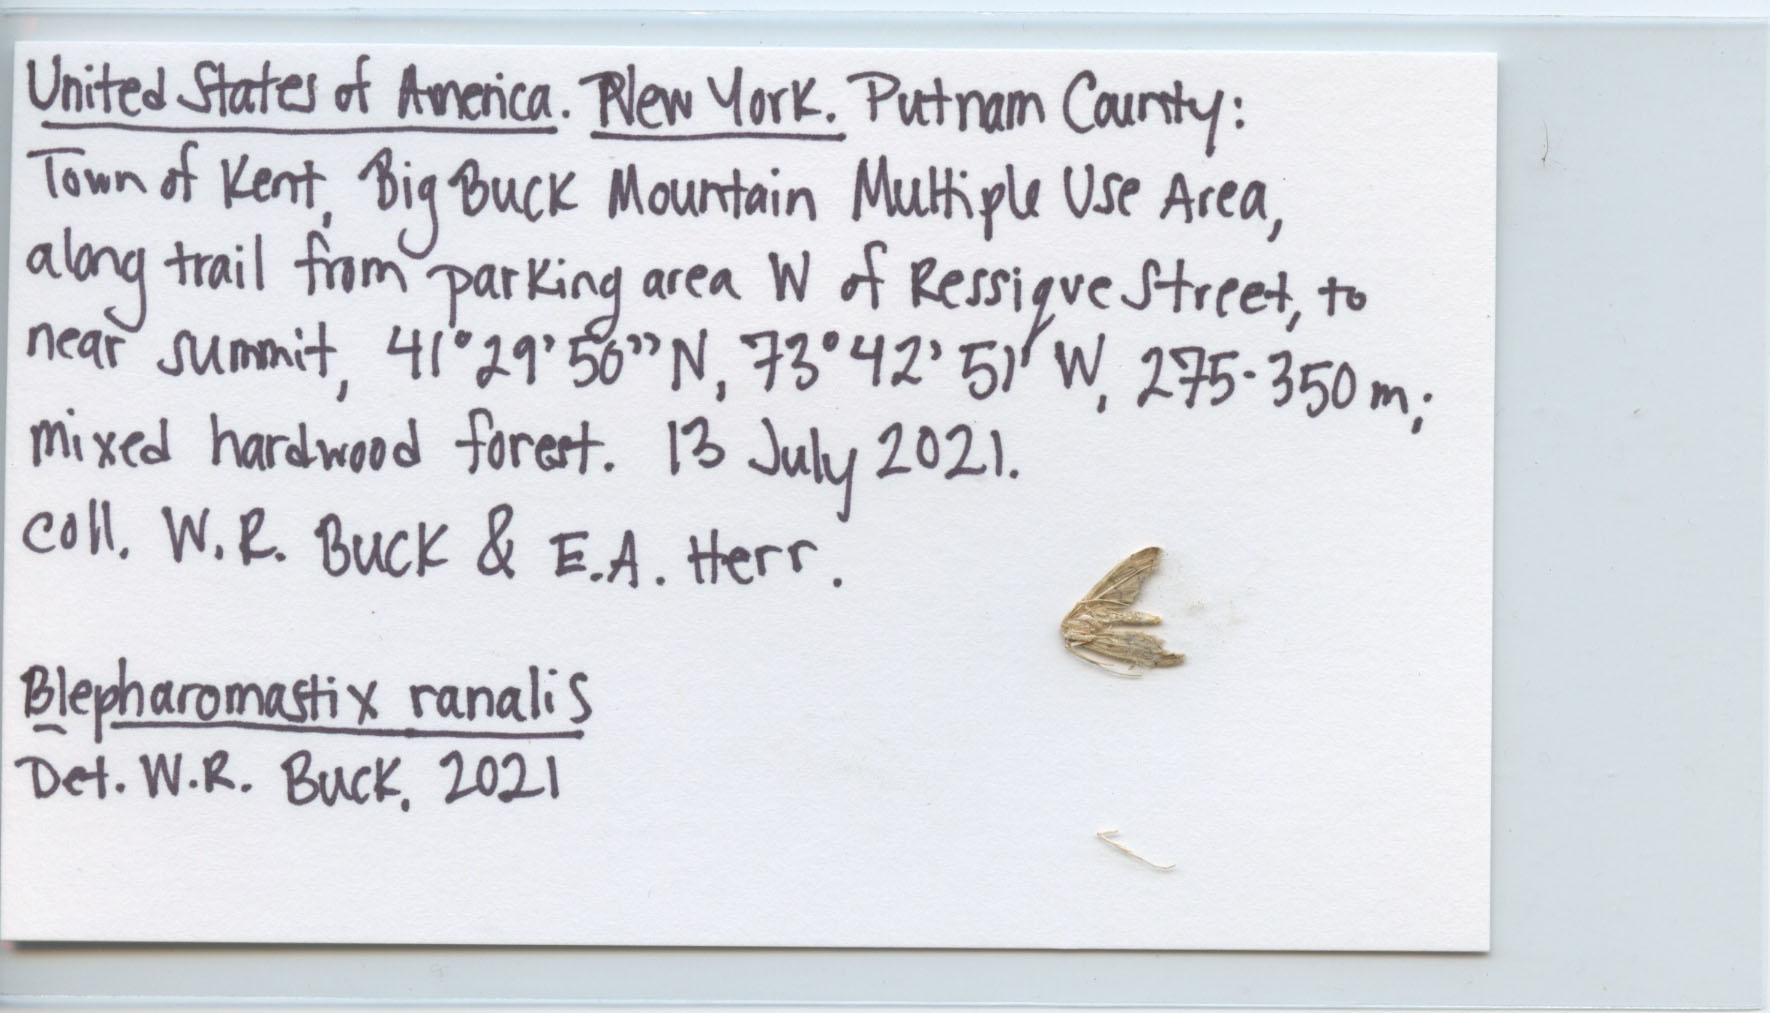 United States of America. New York. Putnam County:
Town of Kent, Big Buck Mountain Multiple Use Area,
along trail from parking area W of Ressique Street, to
near summit, 41°29'56"N, 73°42'51" W, 275-350 m;
mixed hardwood forest. 13 July 2021.
coll. W.R. Buck & E.A. Herr.
Blepharomastix ranalis
Det. W.R. Buck, 2021